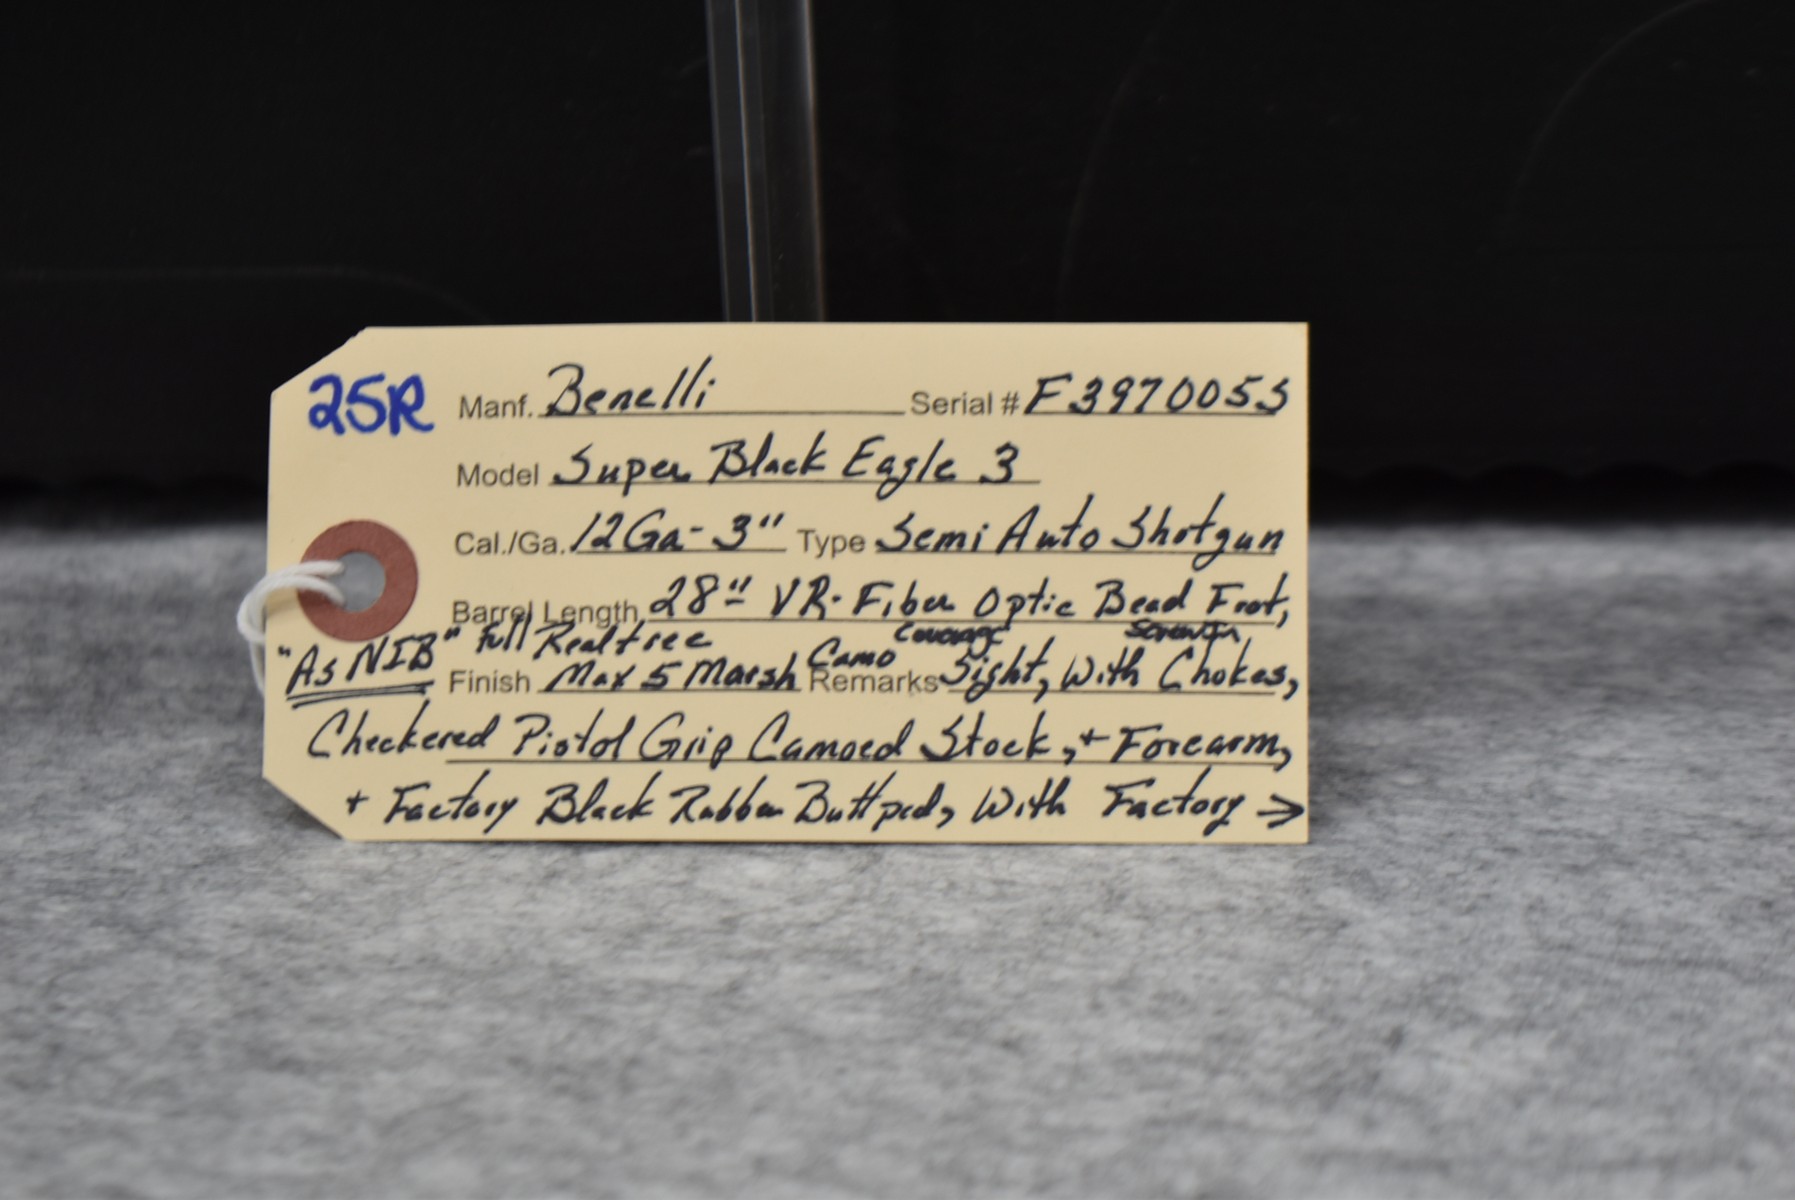 25R Manf. Benelli Serial # F397005S
Model Super Black Eagle 3
Cal./Ga. 12Ga - 3" Type Semi Auto Shotgun
Barrel Length 28" VR - Fiber Optic Bead Front,
"As NIB" Full Realtree Camo coverage Screw-In
Finish Max 5 Marsh Remarks Sight, With Chokes,
Checkered Pistol Grip Camoed Stock, + Forearm,
+ Factory Black Rubber Buttpad, With Factory →